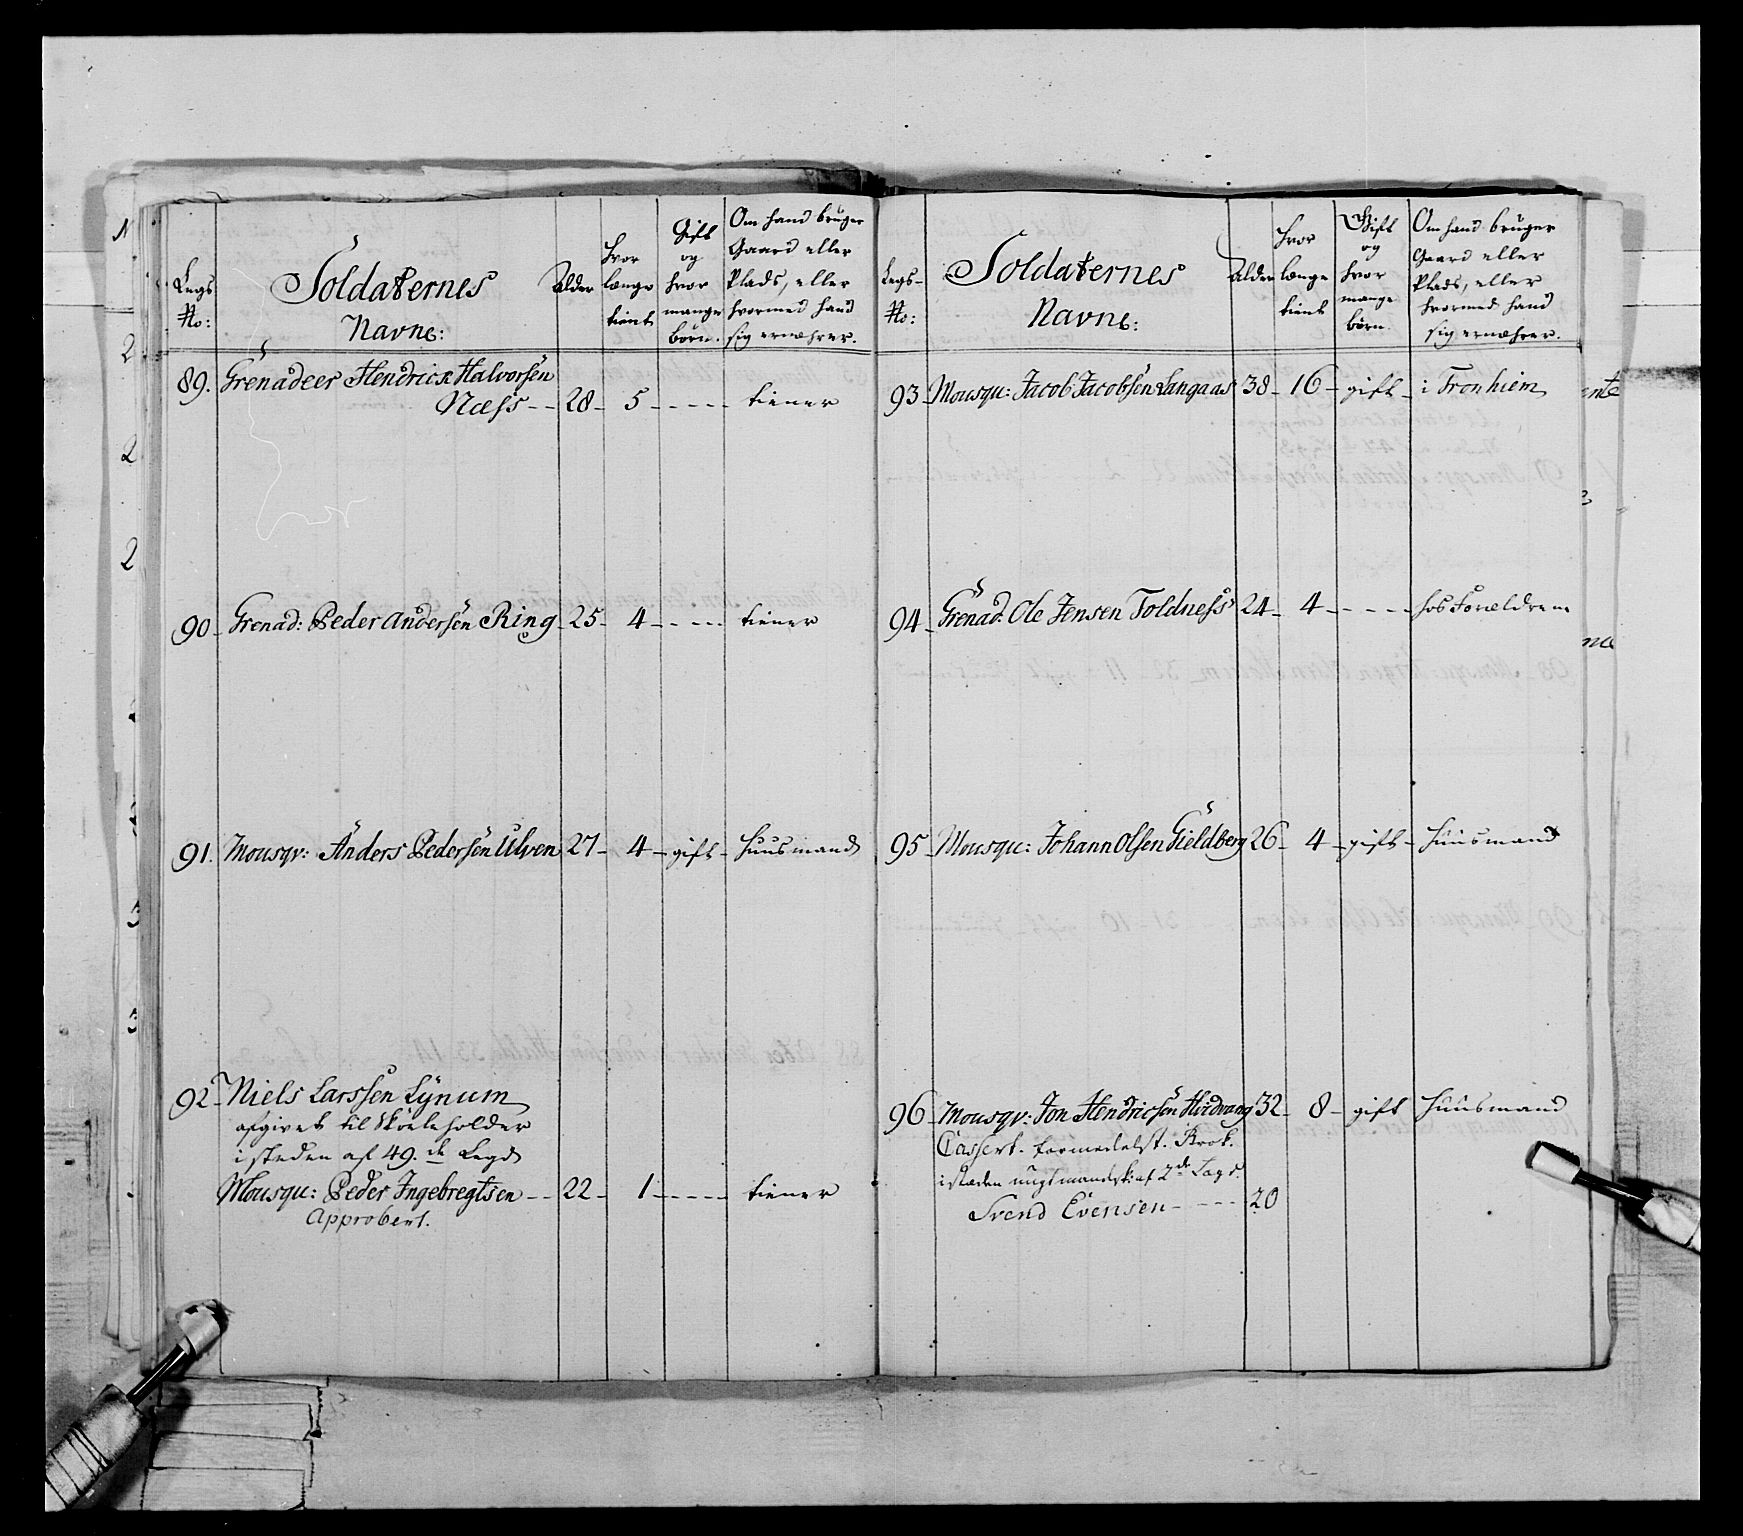 Legs No:
Soldaternes Navne:
Alder
hvor længe tient
Gift og hvor mange börn.
Om hand brüger Gaard eller Plads, eller hvormed hand sig ernæhrer.
89. Grenadeer Hendrick Halvorsen
Næss -- 28 - 5 ----- tiener
90 - Grenad: Peder Andersen Ring - 25 - 4 ----- tiener
91. Mousqv: Anders Pedersen Ulven 27 - 4 - gift - Huusmand
92 - Niels Larssen Lÿnum
afgivet til Skoeleholder
i steden af 49. de Legd
Mousqu: Peder Ingebregtsen -- 22 - 1 ----- tiener
Approbert.
Legs- No:
Soldaternes Navne:
Alder
hvor længe tient
Gift og hvor mange börn.
Om hand brüger Gaard eller Plads, eller hvormed hand sig ernæhrer.
93 - Mousqu: Jacob Jacobsen Langaas 38 - 16 - gift - i Tronhiem
94 - Grenad. Ole Jensen Toldness 24 - 4 ----- hos Forældrene
95 - Mousqu: Johann Olsen Gieldberg 26 - 4 - gift - Huusmand
96 - Mousqv: Jon Hendricsen Hvidvang 32 - 8 - gift Huusmand
Cassert. formedelst. Brok.
i stæden ungmandsk: af 2de Lægd.
Svend Evensen ----- 20